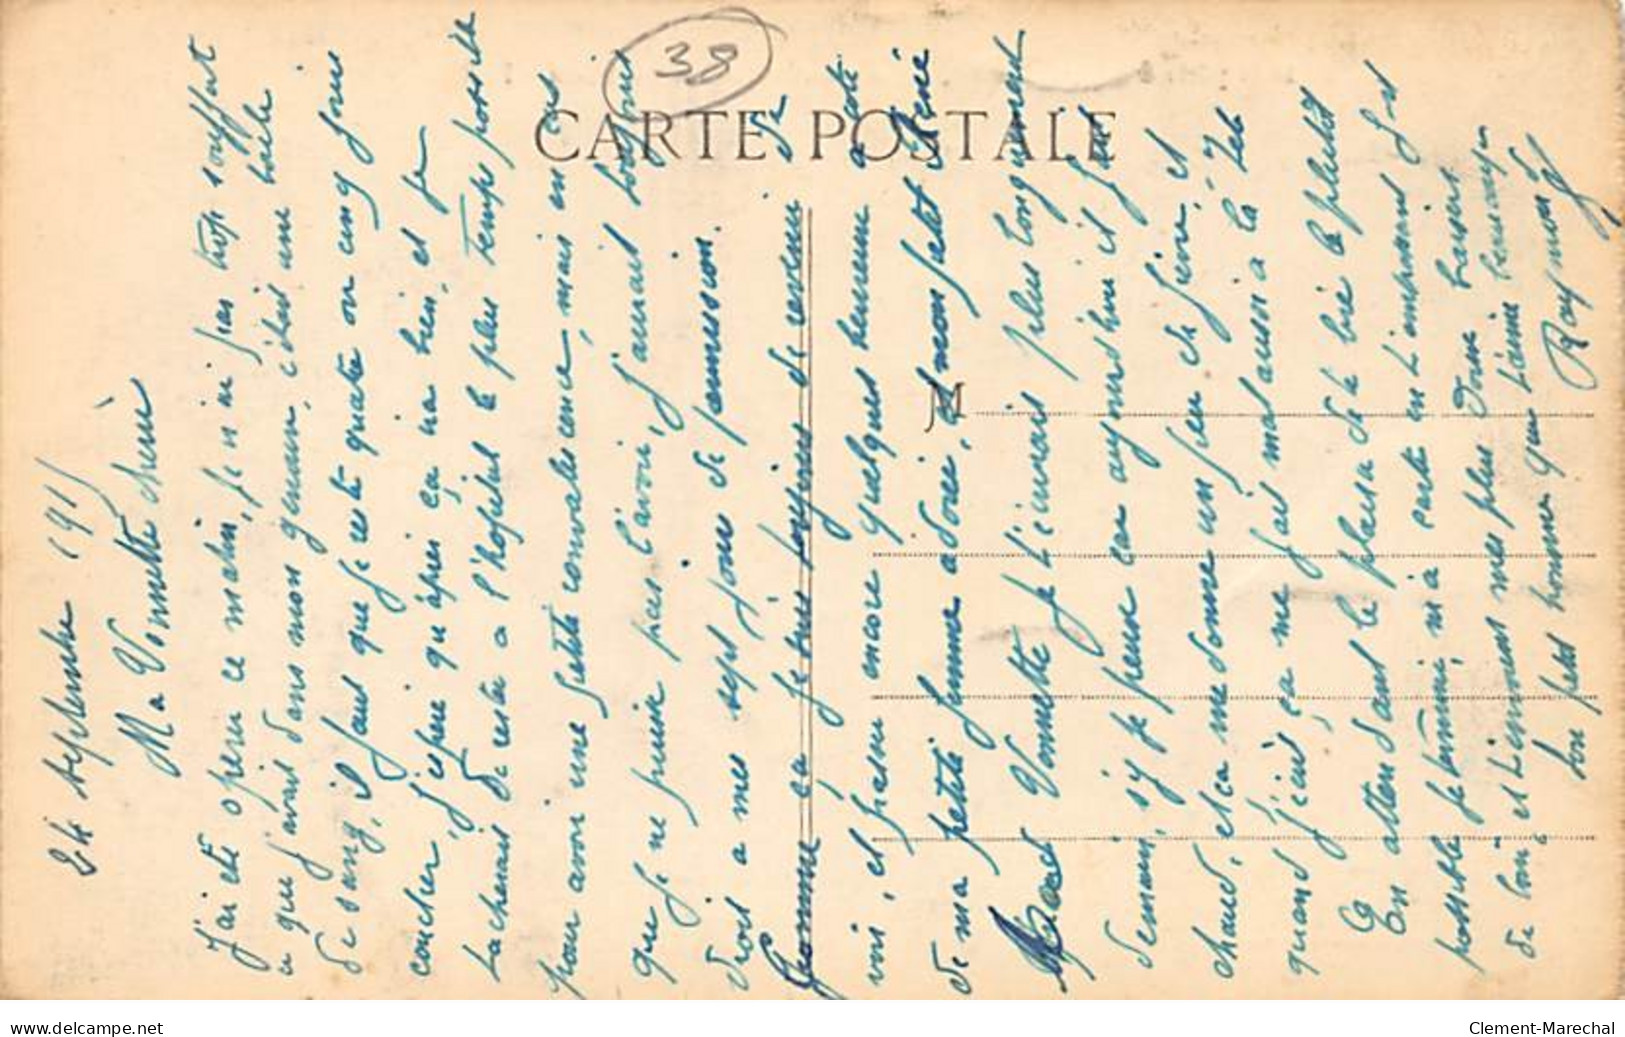 38
CARTE POSTALE
24 septembre 1915
Ma Vonette cherie
J'ai été opéré ce matin, je n'ai pas trop souffert
ce que j'avais dans mon genoux, c'était une boule
de sang, il faut que je reste quatre ou cinq jours
coucher, j'espère qu'après ça ira bien, et je
tacherais de resté a l'hopital le plus temps possible
pour avoir une petite convalescence, mais en cas
que je ne puisse pas l'avoir, j'aurait toujours
droit a mes sept jours de permission. Je
comme ça je suis toujours de revenir
voir, et passer encore quelques temme a coté
de ma petite femme adorée, et mon petit René
Vonette je t'écrirais plus longuement
demain, s'y je peux car aujourd'hui il fait
chaud, et ça me donne un peu de fièvre, et
quand j'écris, ça me fait mal aussi a la tete
En attendant le plaisir de te lire le plutôt
possible je termine, ma carte en t'embrassant fort
de loin, et t'envoies mes plus doux baisers
ton petit homme qui t'aime beaucoup
Raymond
M
www.delcampe.net
Clement-Marechal